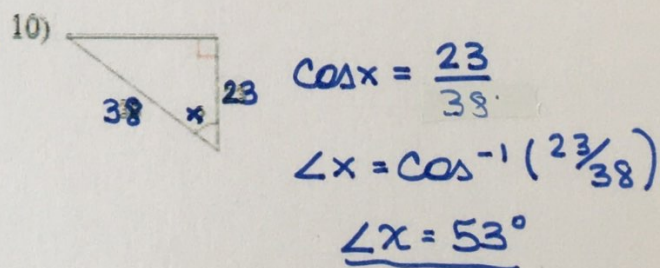 10)
38
x
23
cosx = 23/38
∠x = cos⁻¹ (23/38)
∠x = 53°